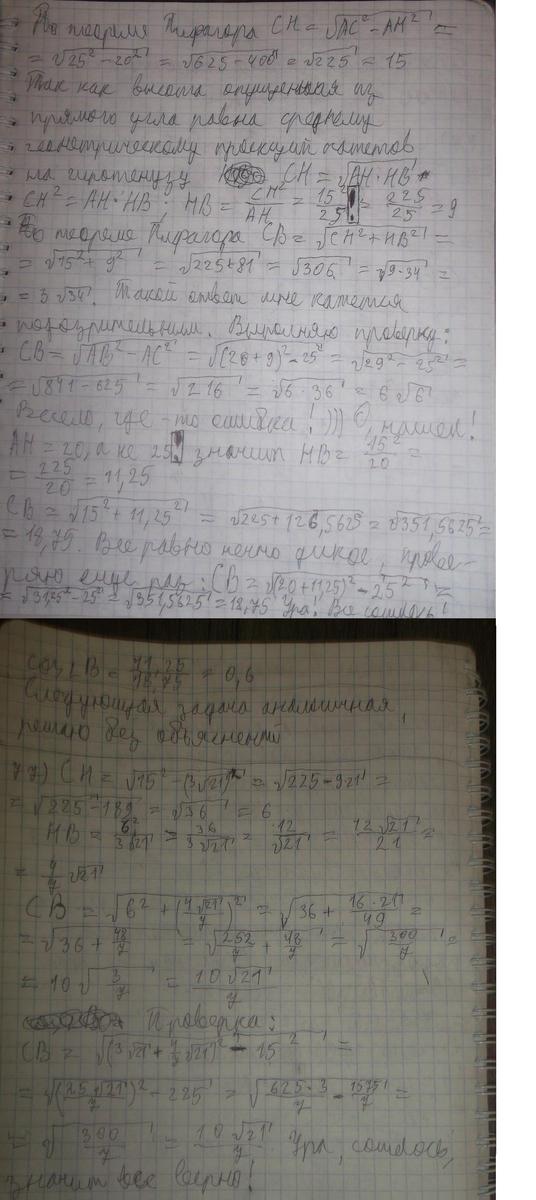 По теореме Пифагора CH = √AC² - AH² =
= √25² - 20² = √625 - 400 = √225 = 15
Так как высота опущенная из
прямого угла равна среднему
геометрическому проекций катетов
на гипотенузу CH = √AH · HB
CH² = AH · HB ; HB = CH²/AH = 15²/25 ! = 225/25 = 9
По теореме Пифагора CB = √CH² + HB² =
= √15² + 9² = √225 + 81 = √306 = √9·34 =
= 3√34. Такой ответ мне кажется
подозрительным. Выполняю проверку:
CB = √AB² - AC² = √(20+9)² - 25² = √29² - 25² =
= √841 - 625 = √216 = √6·36 = 6√6
Весело, где-то ошибка! ))) О, нашел!
AH = 20, а не 25! значит HB = 15²/20 =
= 225/20 = 11,25
CB = √15² + 11,25² = √225 + 126,5625 = √351,5625 =
= 18,75. Все равно дикое, прове-
ряю еще раз: CB = √(20+11,25)² - 25² =
= √31,25² - 25² = √351,5625 = 18,75 Ура! Все сошлось!
cos ∠B = 11,25/18,75 = 0,6
Следующая задача аналогичная,
решаю без объяснений
77) CH = √15² - (3√21)² = √225 - 9·21 =
= √225 - 189 = √36 = 6
HB = 6²/3√21 = 36/3√21 = 12/√21 = 12√21/21 =
= 4/7 √21
CB = √6² + (4√21/7)² = √36 + 16·21/49 =
= √36 + 48/7 = √252/7 + 48/7 = √300/7 =
= 10√3/7 = 10√21/7
Проверка:
CB = √(3√21 + 4/7 √21)² - 15² =
= √(25√21/7)² - 225 = √625·3/7 - 1575/7 =
= √300/7 = 10√21/7 Ура, сошлось,
значит все верно!